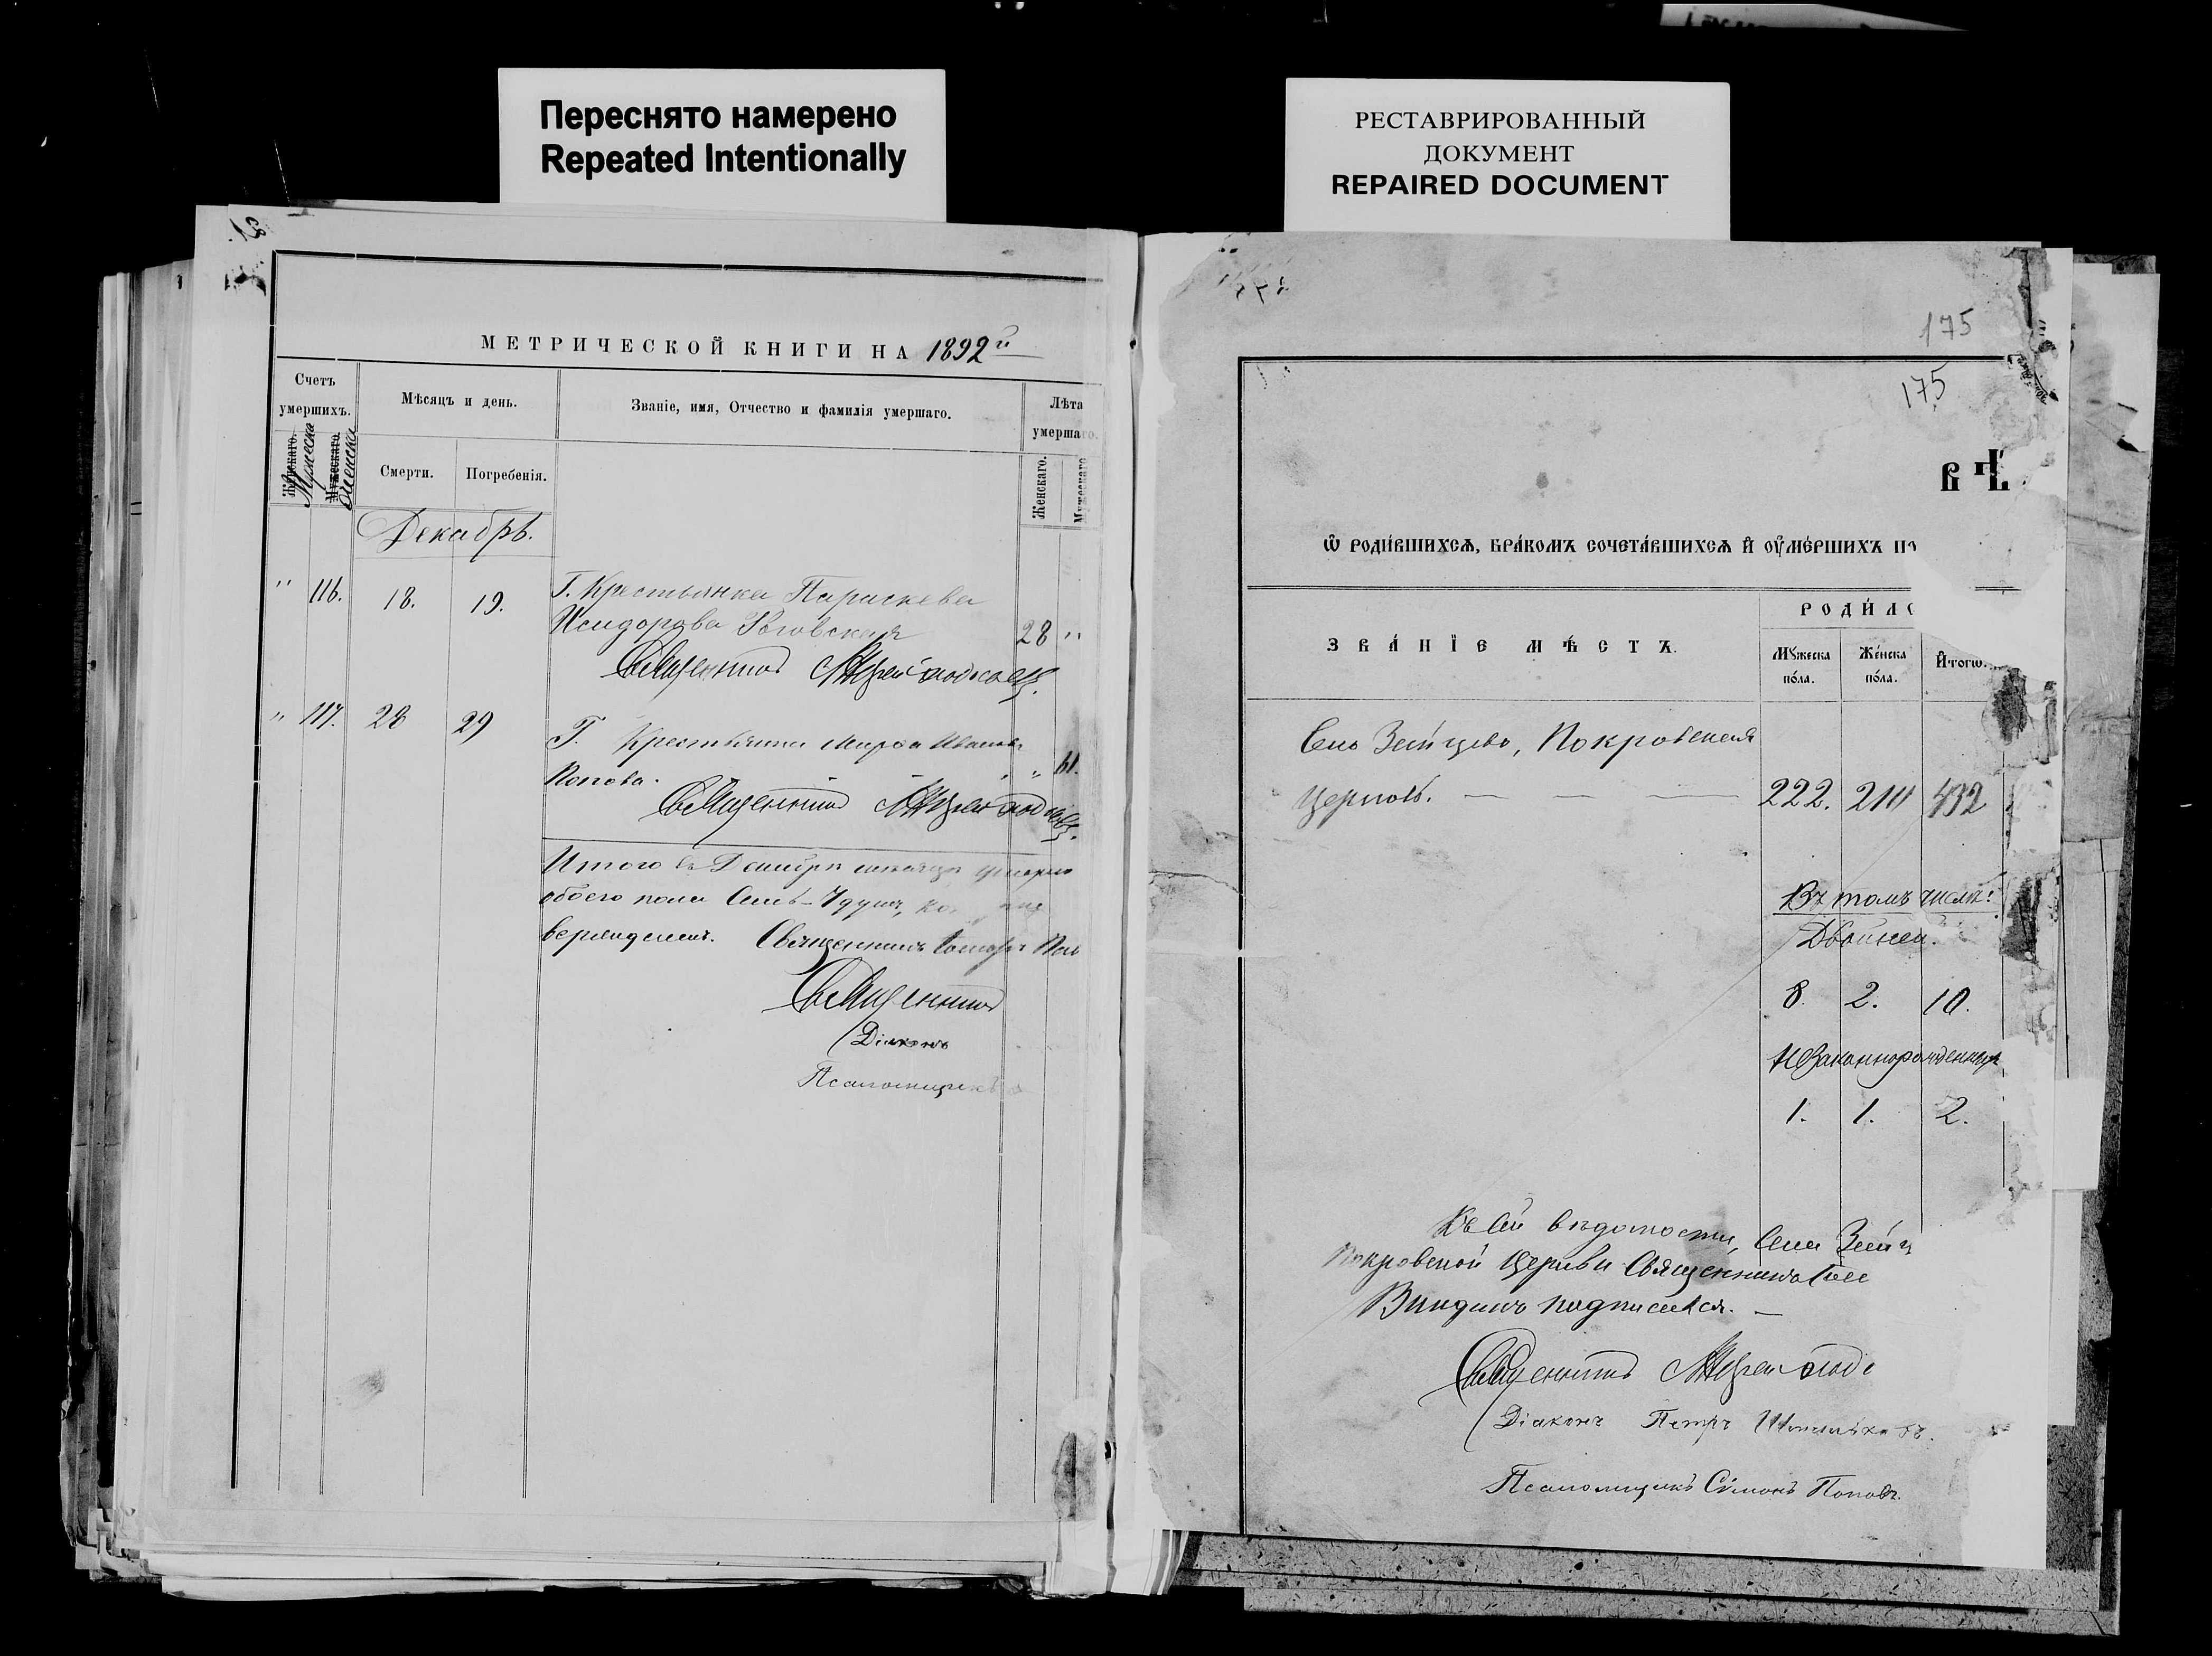 Переснято намерено
Repeated Intentionally
РЕСТАВРИРОВАННЫЙ
ДОКУМЕНТ
REPAIRED DOCUMENT
МЕТРИЧЕСКОЙ КНИГИ НА 1892й
Счетъ
умершихъ.
Мѣсяцъ и день.
Званіе, имя, Отчество и фамилія умершаго.
Лѣта
умершаго.
Женскаго.
Мужеска
Мужескаго.
Женска
Смерти.
Погребенія.
Женскаго.
Мужескаго
Декабрь.
" 116. 18. 19. Г. Крестьянка Параскева
Исидорова 28 "
Священникъ
" 117. 28 29 Г. Крестьянка Марѳа Иванова
Попова. " 61.
Священникъ
Итого въ Декабрѣ мѣсяцѣ умерло
обоего пола Семь-7 душъ,
Священникъ
Священникъ
Діаконъ
Псаломщикъ
175
175
ВѢ
Ѡ РОДИ́ВШИХСѦ, БРА́КОМЪ СОЧЕТА́ВШИХСѦ И҆ ОУ҆МЕ́РШИХЪ
ЗВА́НЇЕ МѢ́СТЪ.
РОДИ́ЛО
Мꙋ́жеска
по́ла.
Же́нска
по́ла.
И҆тогѡ.
Село Зайцево, Покровская
Церковь. — — — 222. 210 432
Въ томъ числѣ:
Двойней.
8. 2. 10.
Незаконнорожденныхъ
1. 1. 2.
Къ сей вѣдомости, Села Зайц
Покровской Церкви Священникъ
подписался. —
Священникъ
Діаконъ Петръ
Псаломщикъ Симонъ Поповъ.